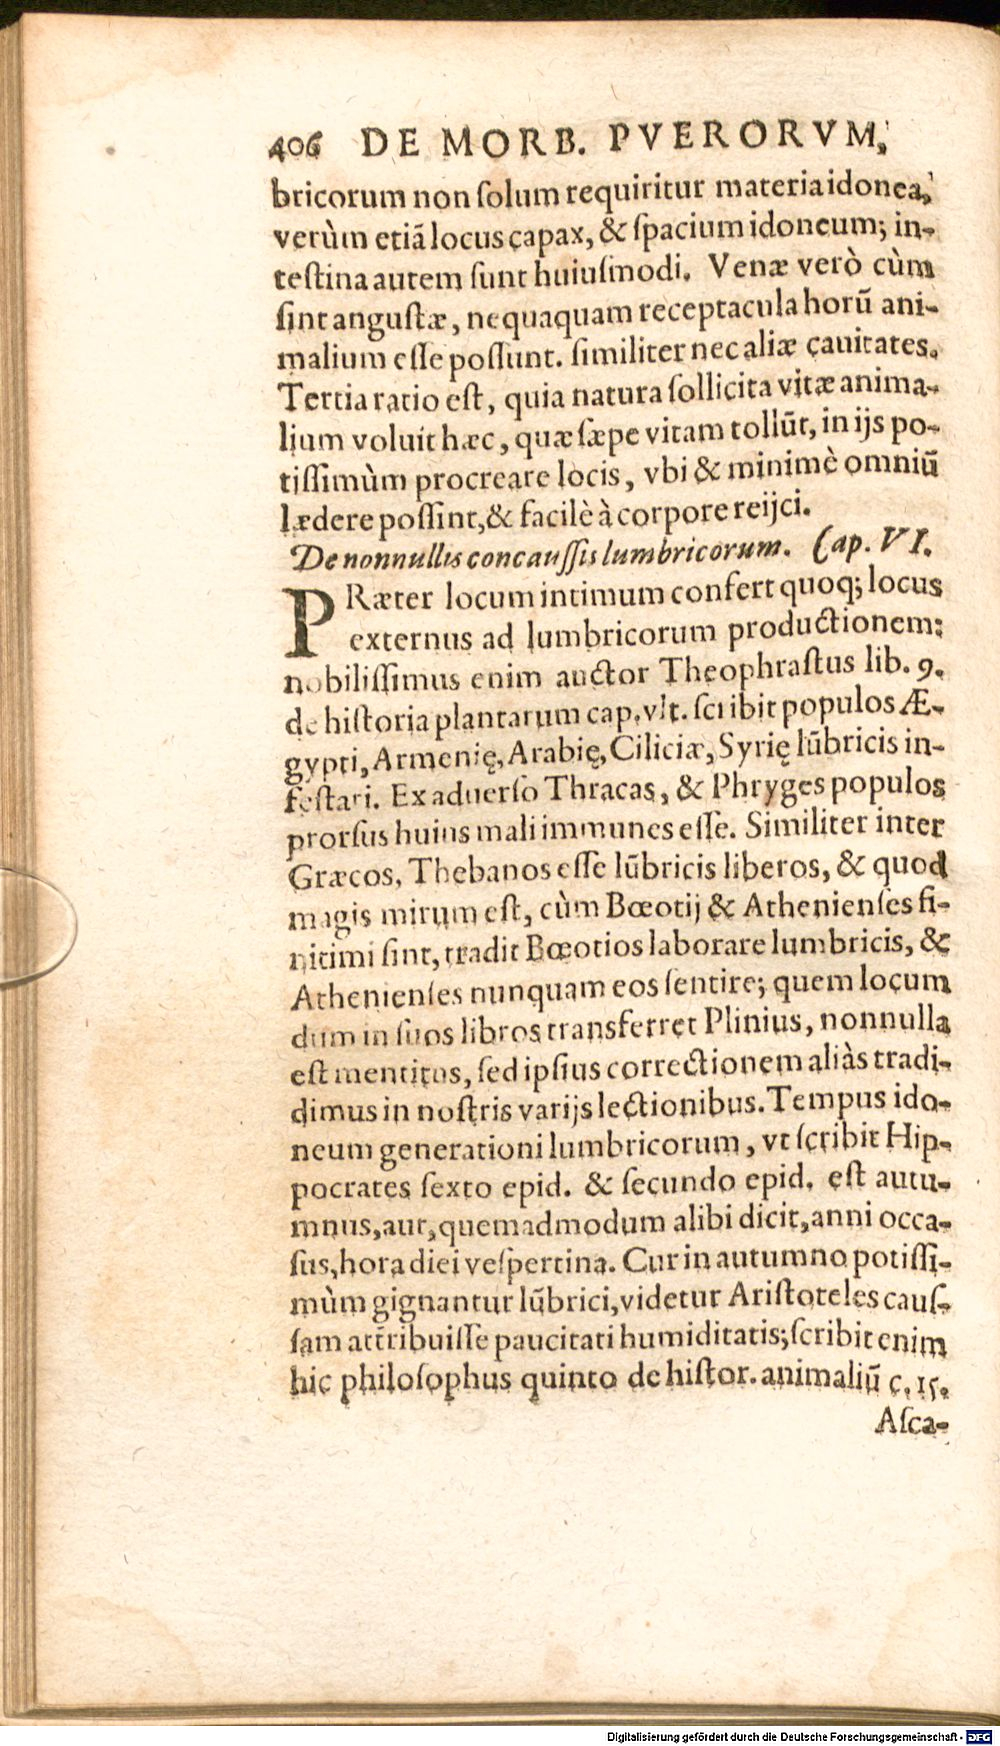 406 DE MORB. PVERORVM,
bricorum non ſolum requiritur materia idonea,
verùm etiã locus capax, & ſpacium idoneum; in-
teſtina autem ſunt huiuſmodi. Venæ verò cùm
ſint anguſtæ, nequaquam receptacula horũ ani-
malium eſſe poſſunt. ſimiliter nec aliæ cauitates.
Tertia ratio eſt, quia natura ſollicita vitæ anima-
lium voluit hæc, quæ ſæpe vitam tollũt, in ijs po-
tiſſimùm procreare locis, vbi & minimè omniũ
lædere poſſint, & facilè à corpore reijci.
De nonnullis concauſſis lumbricorum. Cap. VI.
PRæter locum intimum confert quoq; locus
externus ad lumbricorum productionem:
nobiliſſimus enim auctor Theophraſtus lib. 9.
de hiſtoria plantarum cap. vlt. ſcribit populos Æ-
gypti, Armenię, Arabię, Ciliciæ, Syrię lũbricis in-
feſtari. Ex aduerſo Thracas, & Phryges populos
prorſus huius mali immunes eſſe. Similiter inter
Græcos, Thebanos eſſe lũbricis liberos, & quod
magis mirum eſt, cùm Bœotij & Athenienſes fi-
nitimi ſint, tradit Bœotios laborare lumbricis, &
Athenienſes nunquam eos ſentire; quem locum
dum in ſuos libros transferret Plinius, nonnulla
eſt mentitus, ſed ipſius correctionem aliàs tradi-
dimus in noſtris varijs lectionibus. Tempus ido-
neum generationi lumbricorum, vt ſcribit Hip-
pocrates ſexto epid. & ſecundo epid. eſt autu-
mnus, aut, quemadmodum alibi dicit, anni occa-
ſus, hora diei veſpertina. Cur in autumno potiſſi-
mùm gignantur lũbrici, videtur Ariſtoteles cauſ-
ſam attribuiſſe paucitati humiditatis; ſcribit enim
hic philoſophus quinto de hiſtor. animaliũ c. 15.
Aſca-
Digitalisierung gefördert durch die Deutsche Forschungsgemeinschaft - DFG